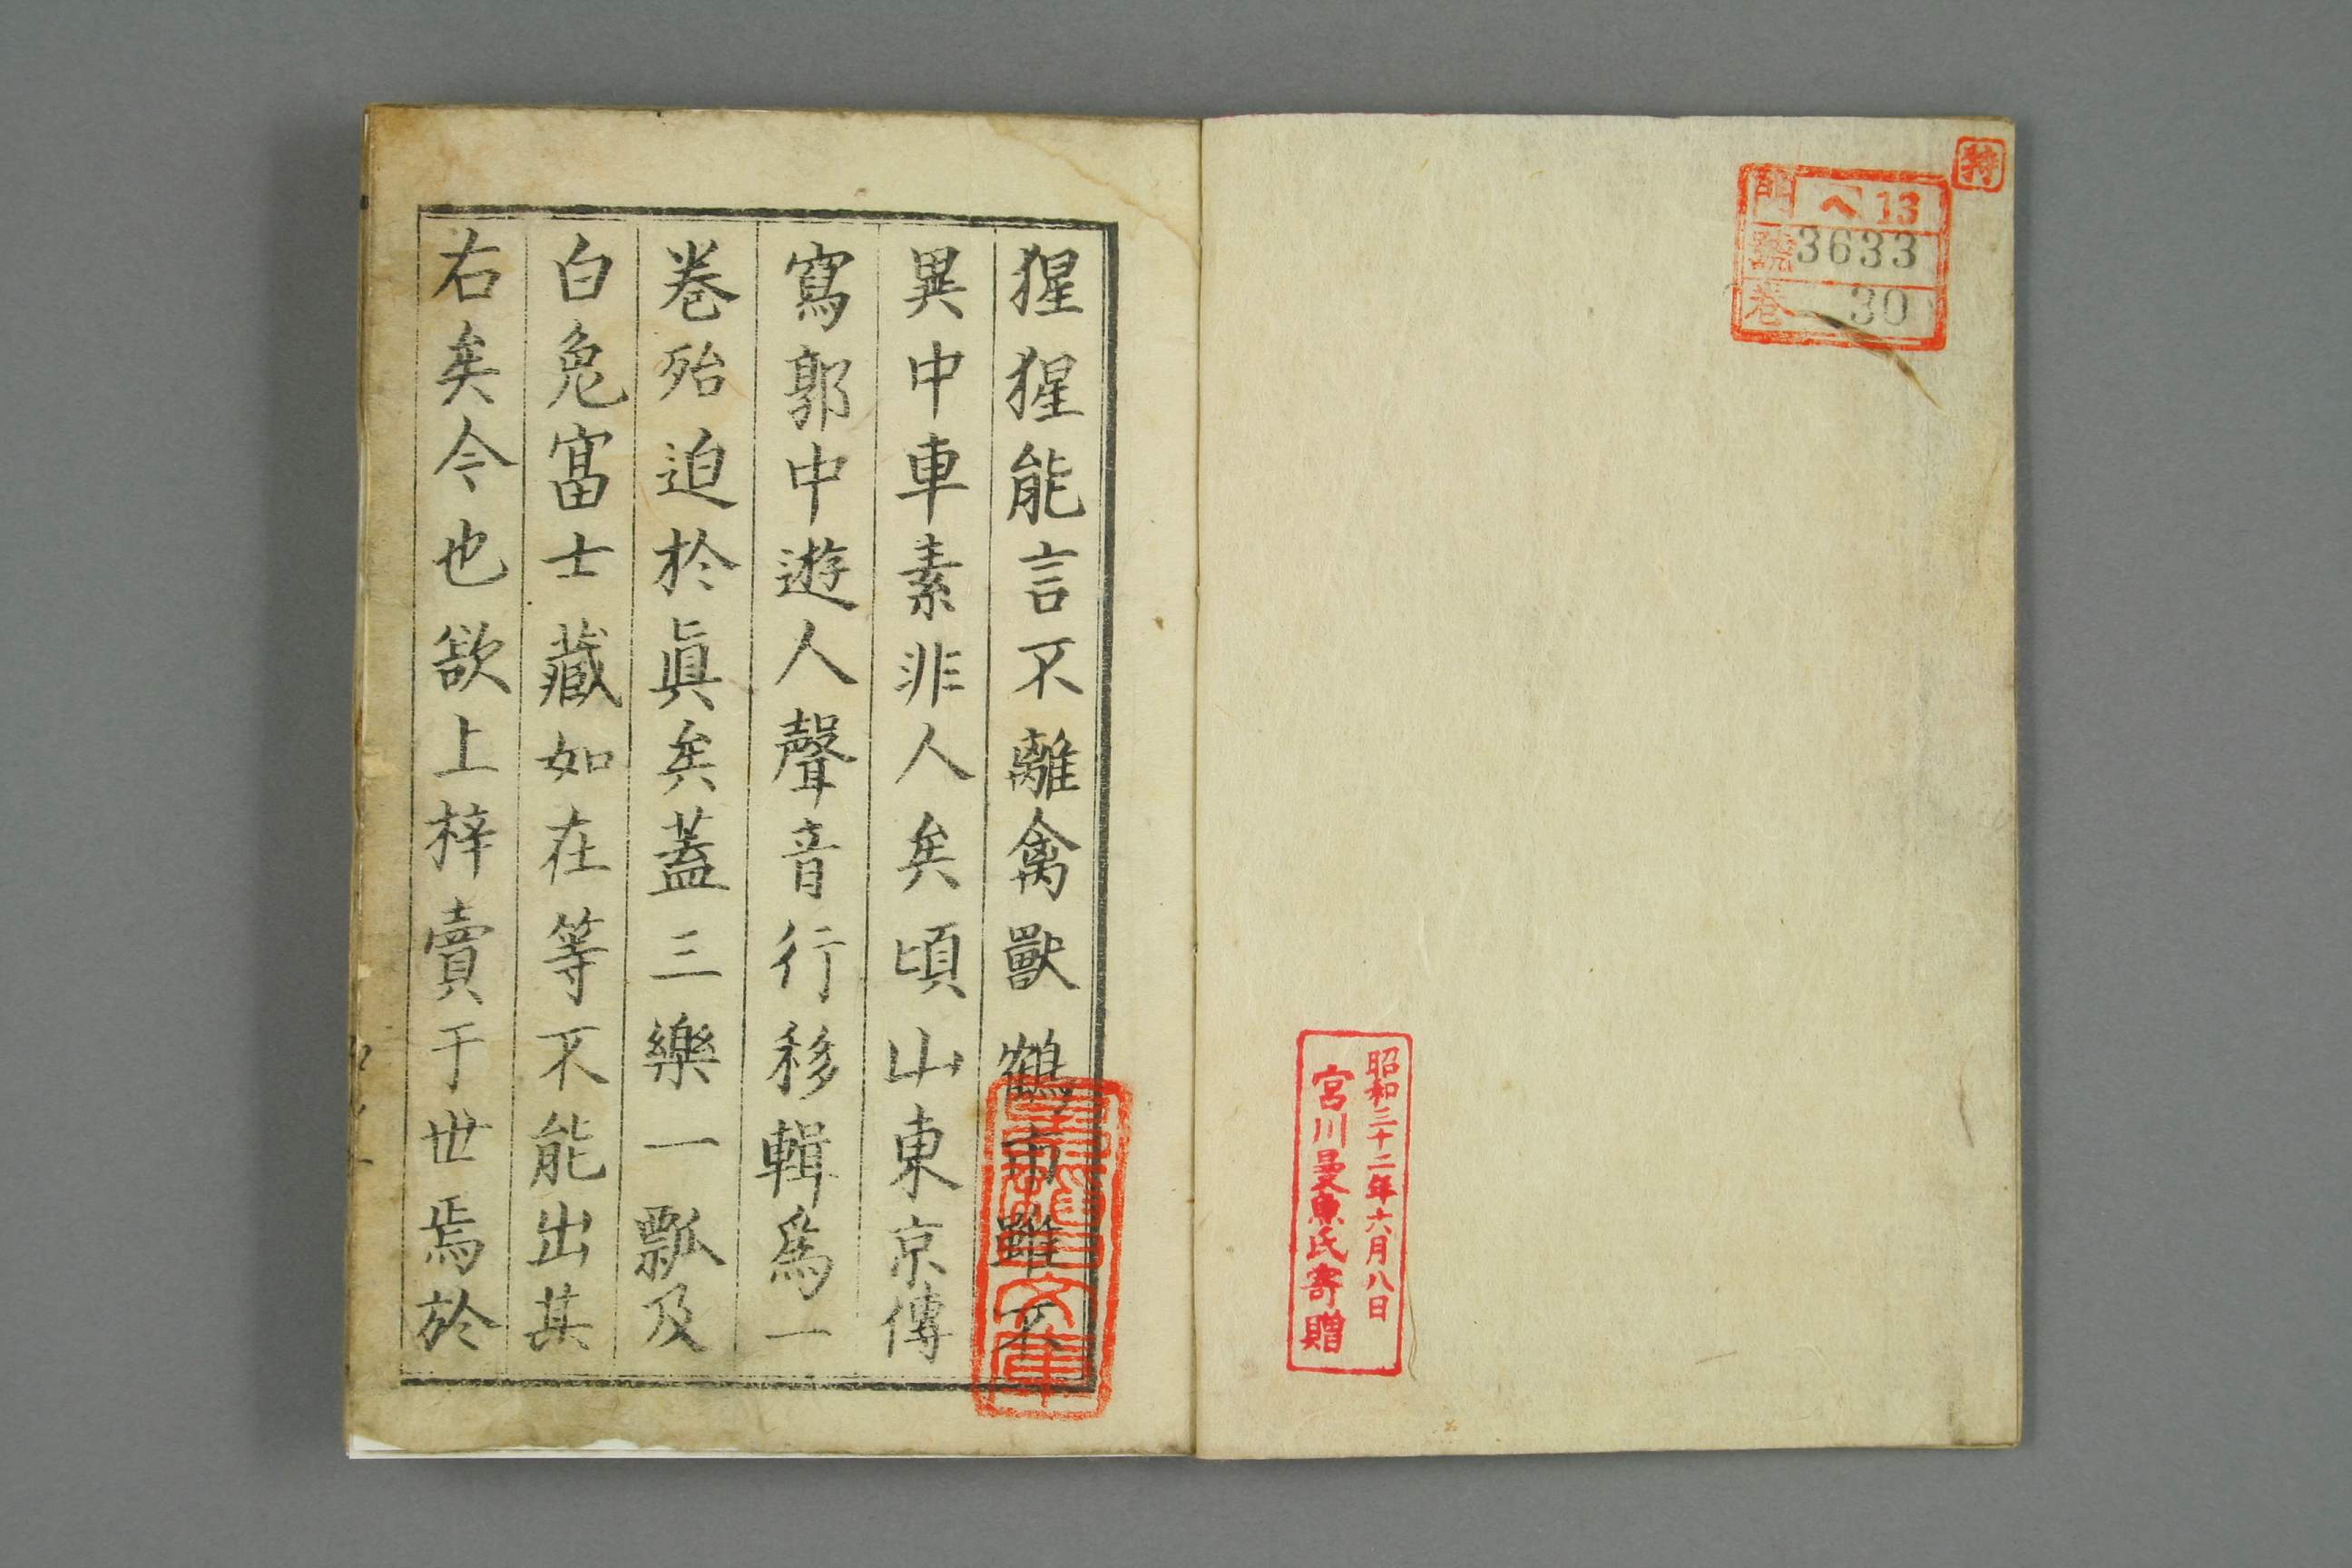 特
門 ヘ13
號 3633
巻 30
昭和三十二年六月八日
宮川曼魚氏寄贈
猩猩能言不離禽獸鶴市雖不
異中車素非人矣頃山東京傳
寫郭中遊人聲音行移輯爲一
巻殆迫於眞矣蓋三樂一瓢及
白兔富士藏如在等不能出其
右矣今也欲上梓賣于世焉於
文庫